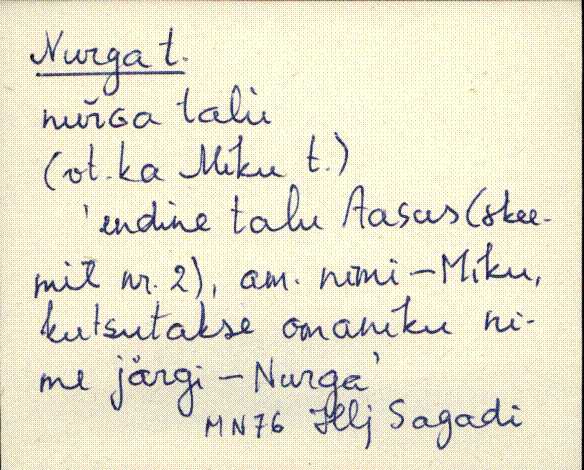 Nurga t.
nuřɢa talu
(vt. ka Miku t.)
'endine talu Aasus (skee-
mil nr. 2), am. nimi – Miku,
kutsutakse omaniku ni-
me järgi – Nurga'
MN76 Hlj Sagadi